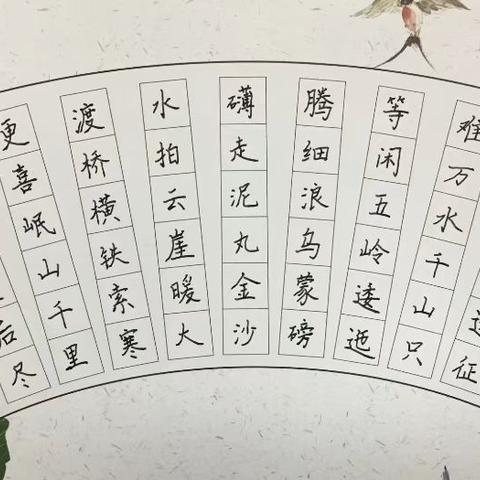 征
难万水千山只
等闲五岭逶迤
腾细浪乌蒙磅
礴走泥丸金沙
水拍云崖暖大
渡桥横铁索寒
更喜岷山千里
后尽